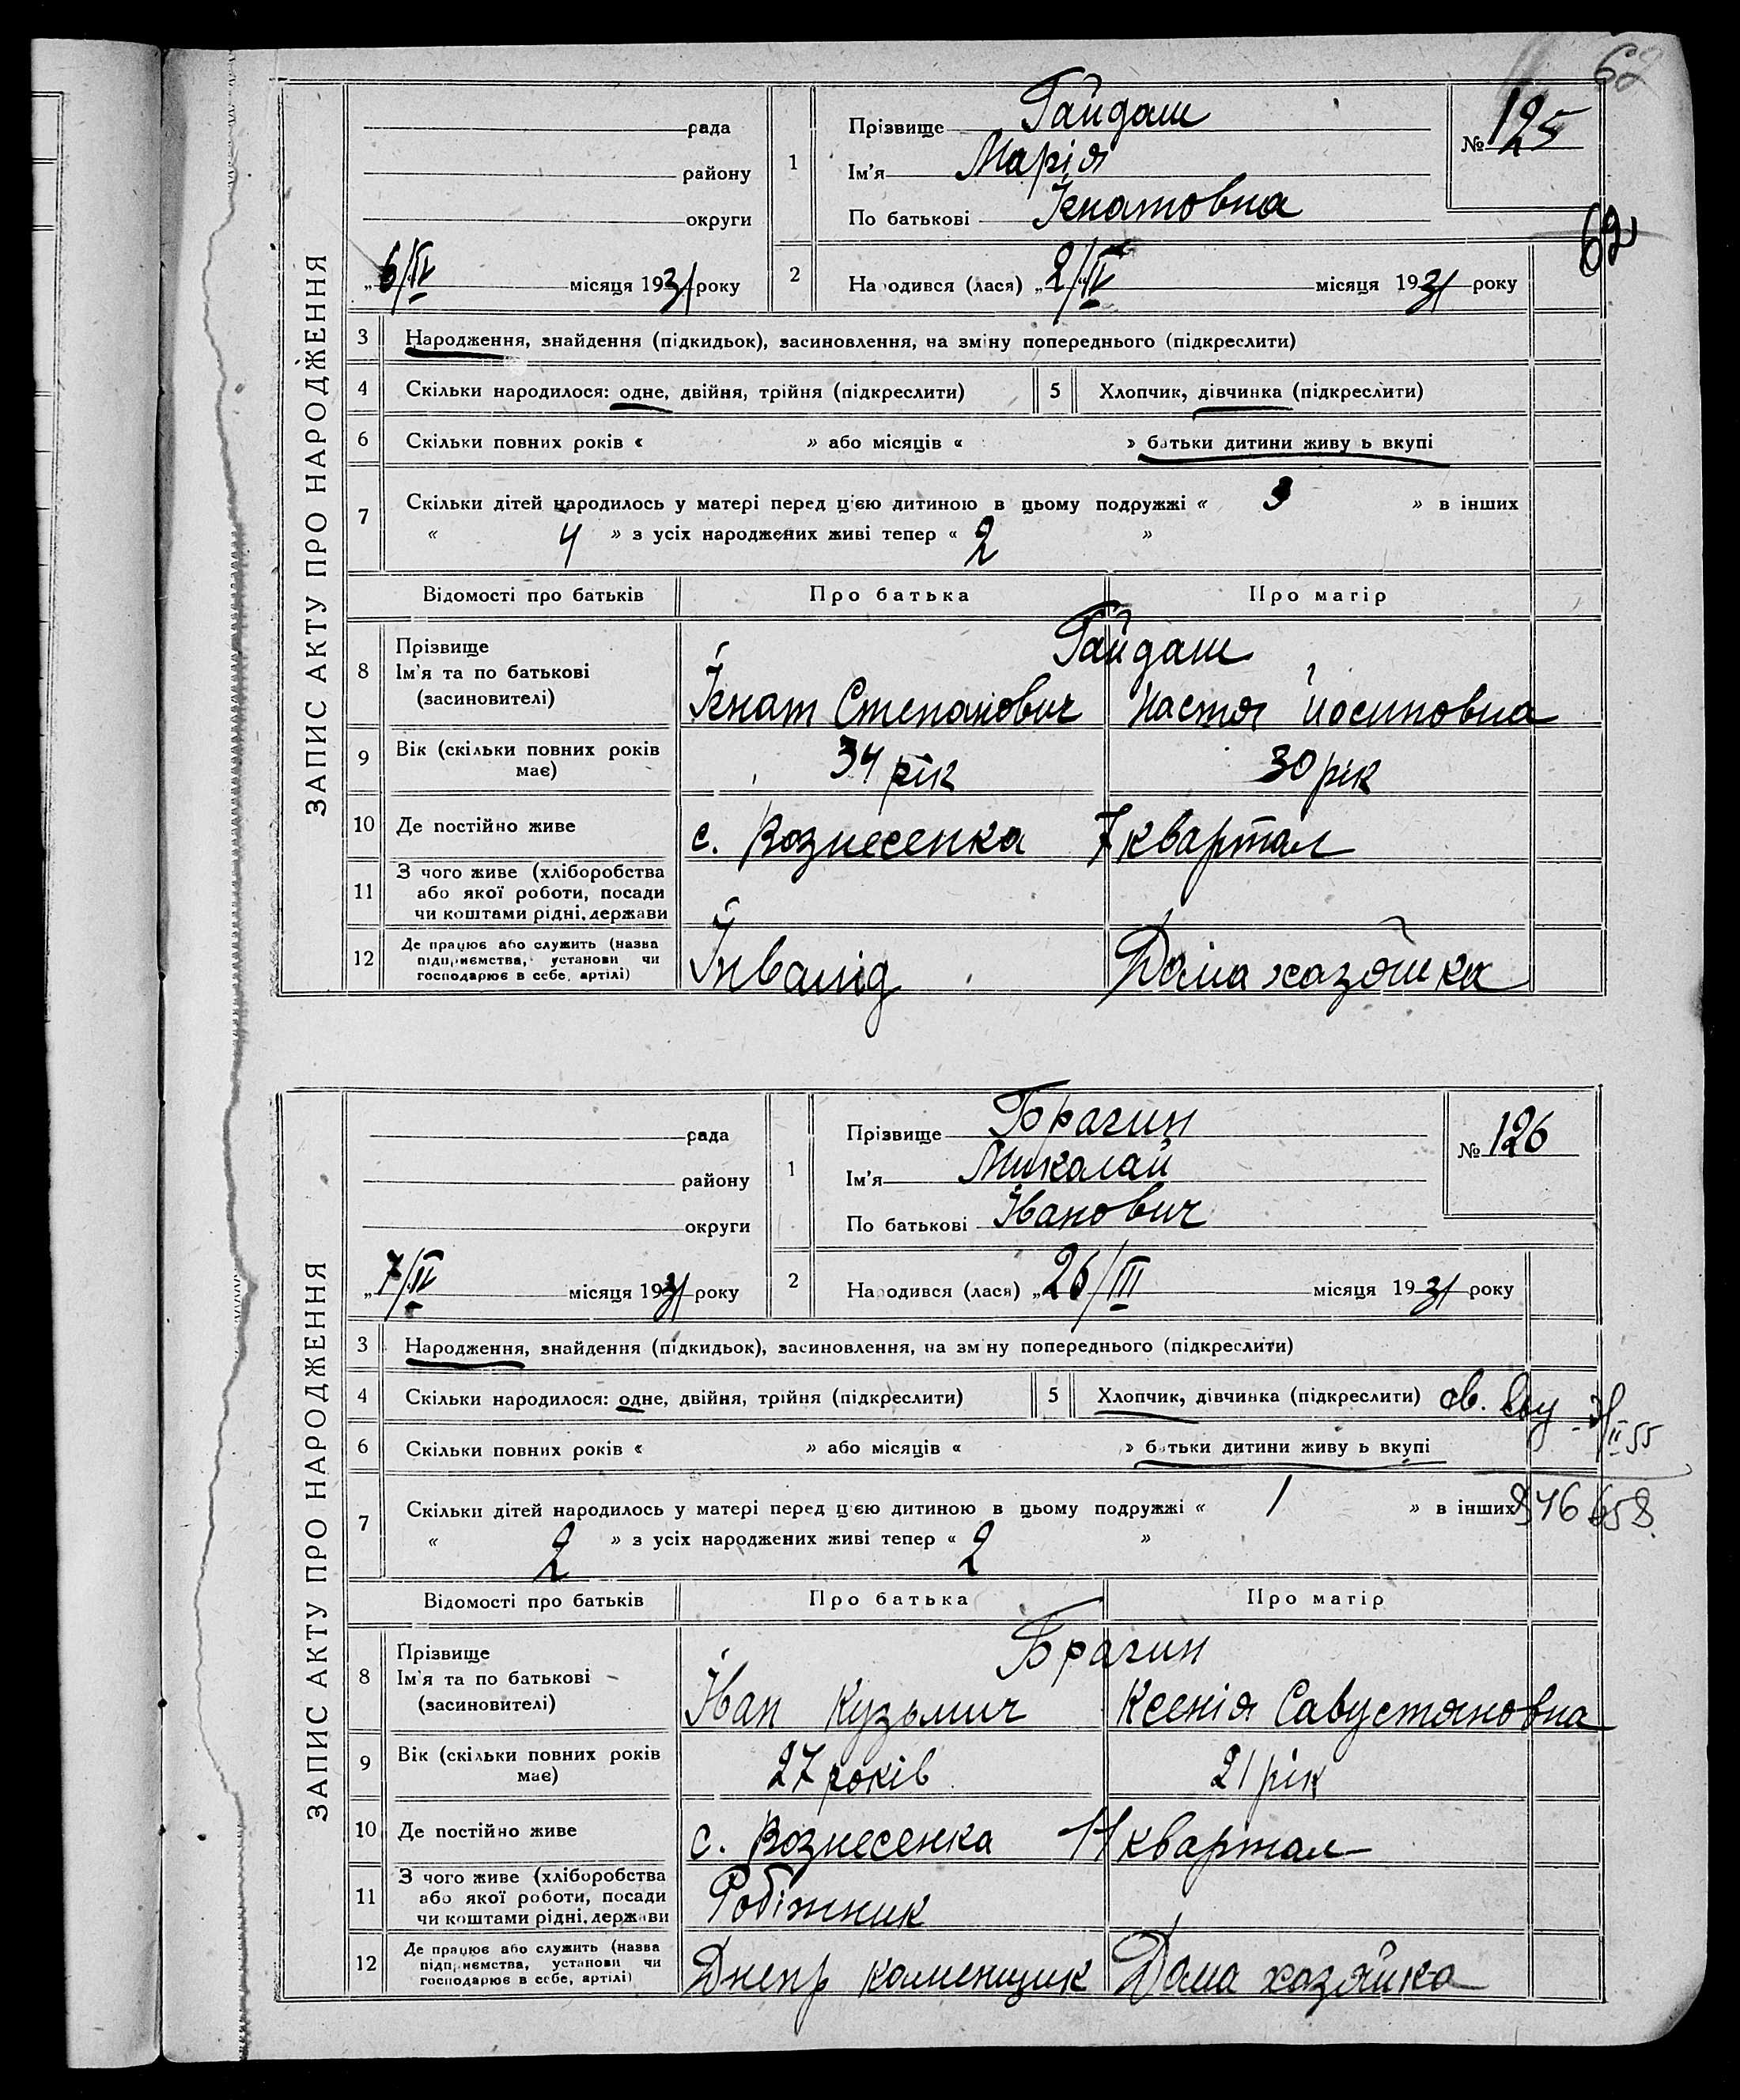 62
ЗАПИС АКТУ ПРО НАРОДЖЕННЯ
рада
району
округи
„6/IV місяця 1931 року
1
Прізвище Гайдаш
Ім'я Марія
По батькові Ігнатовна
№ 125
62
2
Народився (лася) „2/IV місяця 1931 року
3 Народження, знайдення (підкидьок), засиновлення, на зміну попереднього (підкреслити)
4 Скільки народилося: одне, двійня, трійня (підкреслити) 5 Хлопчик, дівчинка (підкреслити)
6 Скільки повних років « » або місяців « » батьки дитини живу ь вкупі
7 Скільки дітей народилось у матері перед цією дитиною в цьому подружжі « 3 » в інших
« 4 » з усіх народжених живі тепер « 2 »
Відомості про батьків Про батька Про матір
8 Прізвище
Ім'я та по батькові
(засиновителі)
Гайдаш
Ігнат Степанович Настя Йосиповна
9 Вік (скільки повних років має) 34 рік 30 рік
10 Де постійно живе с. Вознесенка 7 квартал
11 З чого живе (хліборобства
або якої роботи, посади
чи коштами рідні, держави
12 Де працює або служить (назва
підприємства, установи чи
господарює в себе, артілі)
Інвалід Дома хазяйка
ЗАПИС АКТУ ПРО НАРОДЖЕННЯ
рада
району
округи
„7/IV місяця 1931 року
1
Прізвище Брагин
Ім'я Миколай
По батькові Іванович
№ 126
2
Народився (лася) „26/III місяця 1931 року
3 Народження, знайдення (підкидьок), засиновлення, на зміну попереднього (підкреслити)
4 Скільки народилося: одне, двійня, трійня (підкреслити) 5 Хлопчик, дівчинка (підкреслити) св.
II 55
6 Скільки повних років « » або місяців « » батьки дитини живу ь вкупі
7 Скільки дітей народилось у матері перед цією дитиною в цьому подружжі « 1 » в інших
946 658.
« 2 » з усіх народжених живі тепер « 2 »
Відомості про батьків Про батька Про матір
8 Прізвище
Ім'я та по батькові
(засиновителі)
Брагин
Іван Кузьмич Ксенія Савустяновна
9 Вік (скільки повних років має) 27 років 21 рік
10 Де постійно живе с. Вознесенка 11 квартал
11 З чого живе (хліборобства
або якої роботи, посади
чи коштами рідні, держави
Робітник
12 Де працює або служить (назва
підприємства, установи чи
господарює в себе, артілі)
Днепр каменщик Дома хазяйка